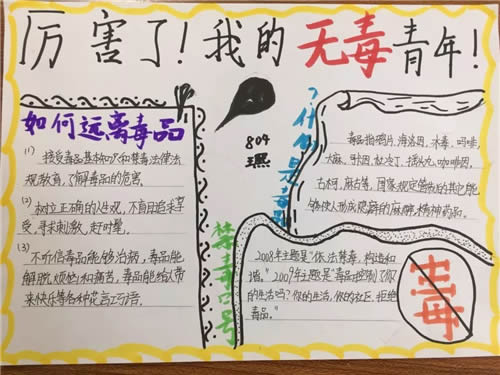 厉害了！我的无毒青年！
如何远离毒品
(1) 接受毒品基本知识和禁毒法律法
规教育，了解毒品的危害。
(2) 树立正确的人生观，不盲目追求享
受、寻求刺激、赶时髦。
(3) 不听信毒品能够治病，毒品能
解脱烦恼和痛苦，毒品能给人带
来快乐等各种花言巧语。
804
什么是毒品？
毒品指鸦片，海洛因，冰毒，吗啡，
大麻，可卡因，杜冷丁，摇头丸，咖啡因，
古柯，麻古等，国家规定管制的其它能
够使人形成瘾癖的麻醉、精神药品。
禁毒口号
2008年主题是“依法禁毒，构建和
谐。”2009年主题是“毒品控制了你
的生活吗？你的生活，你的社区，拒绝
毒品。”
毒